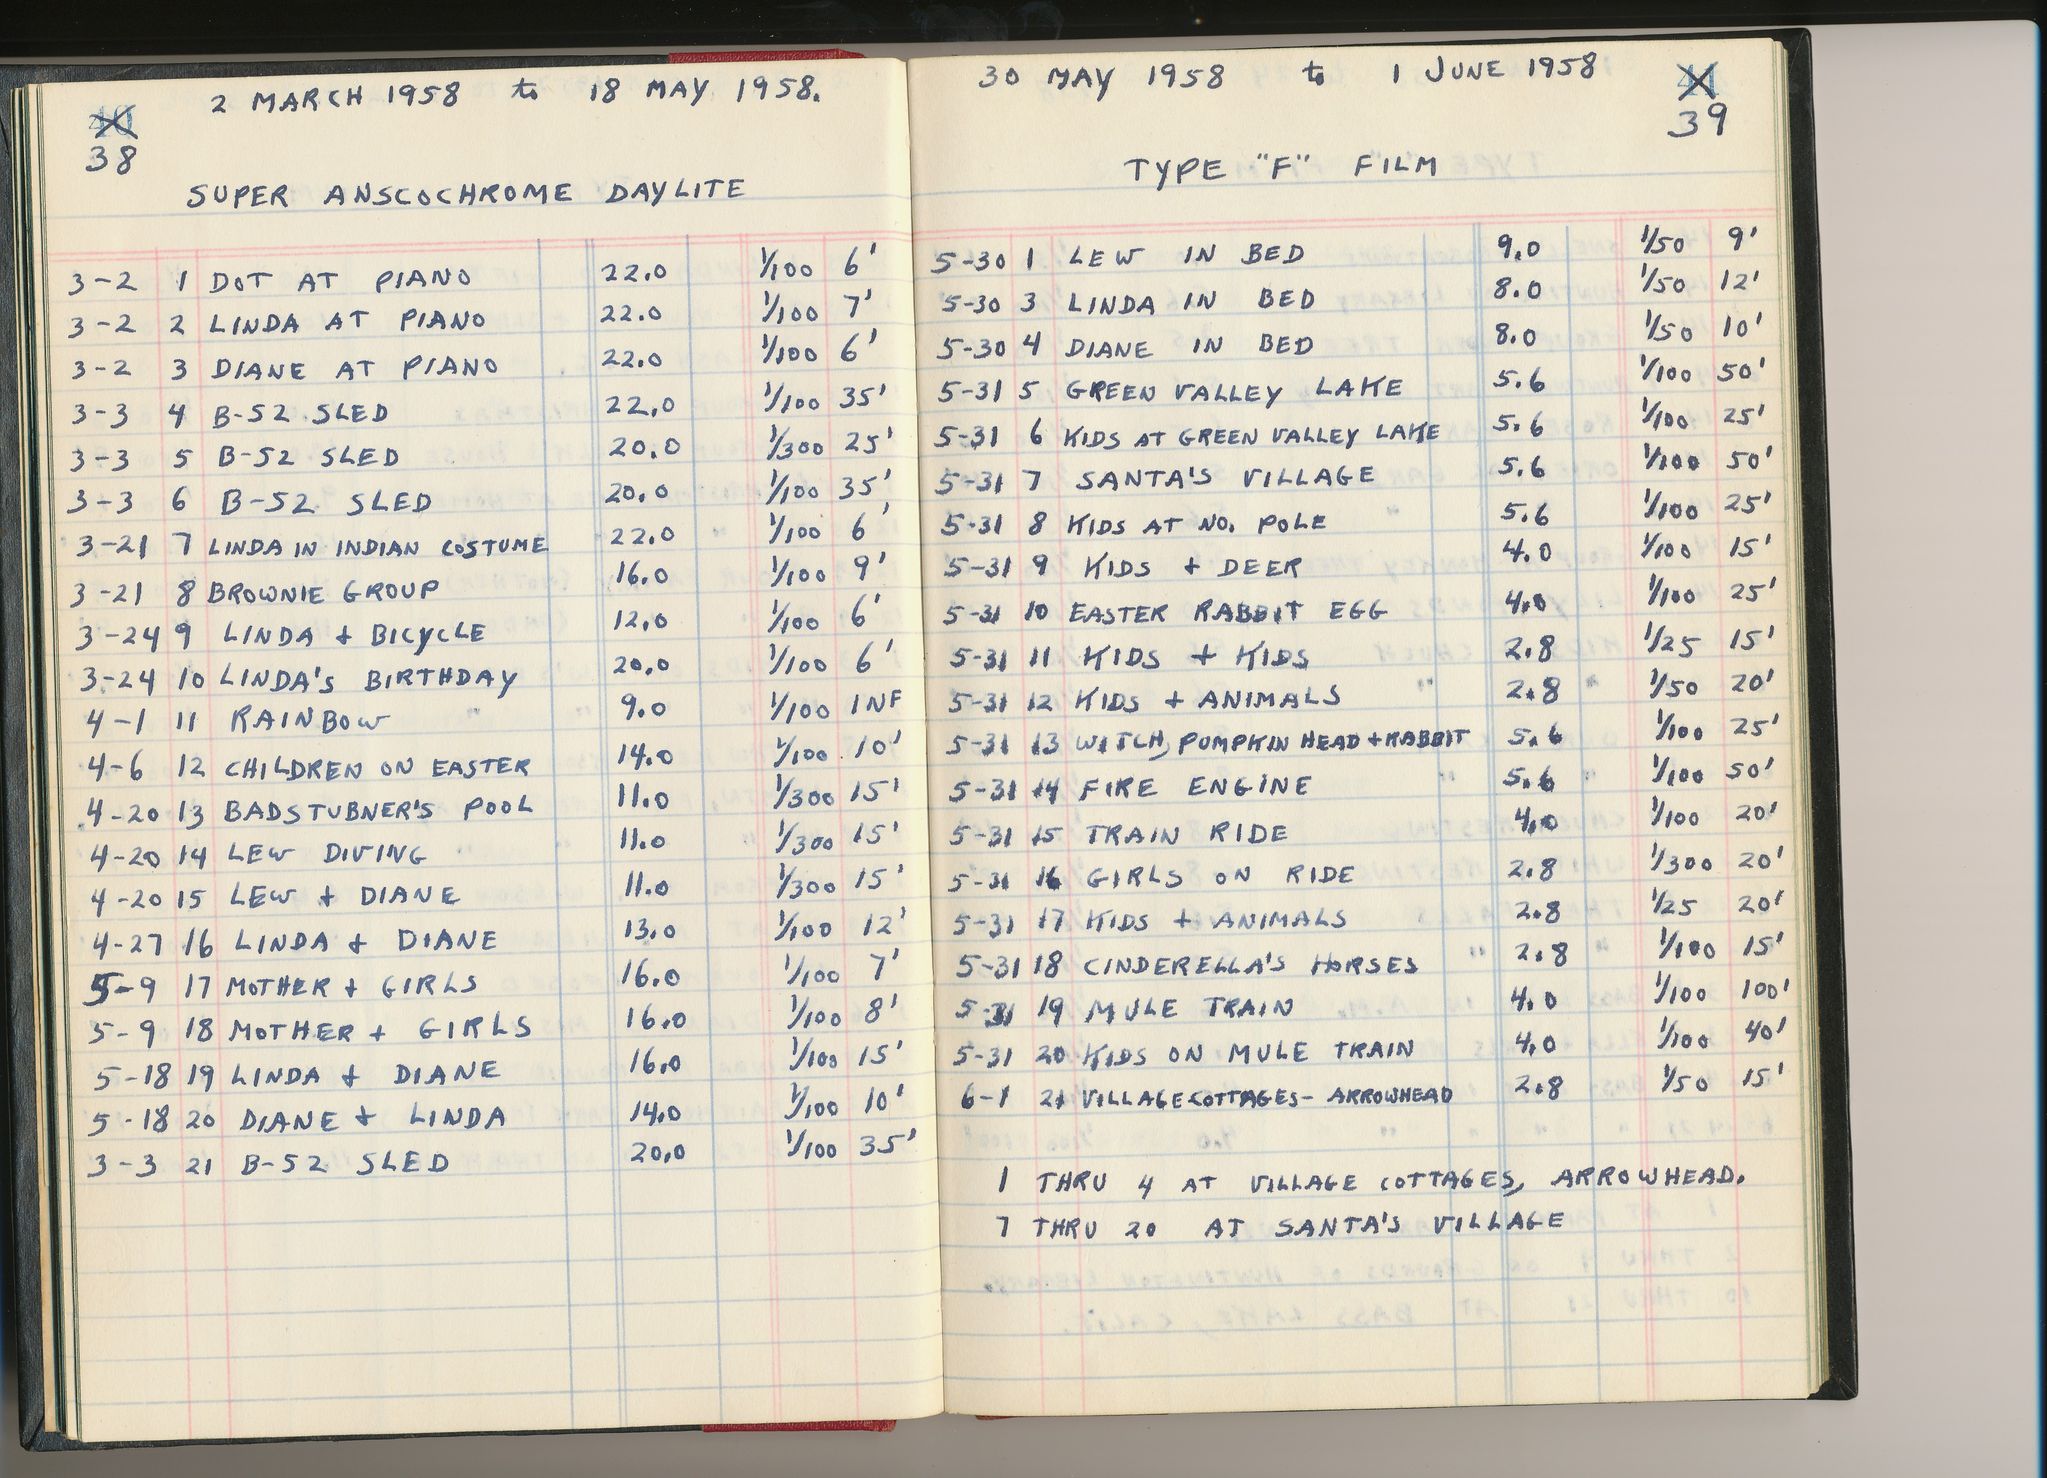 2 MARCH 1958 to 18 MAY 1958.
40
38
SUPER ANSCOCHROME DAYLITE
3-2 1 DOT AT PIANO 22.0 1/100 6'
3-2 2 LINDA AT PIANO 22.0 1/100 7'
3-2 3 DIANE AT PIANO 22.0 1/100 6'
3-3 4 B-52 SLED 22.0 1/100 35'
3-3 5 B-52 SLED 20.0 1/300 25'
3-3 6 B-52 SLED 20.0 1/100 35'
3-21 7 LINDA IN INDIAN COSTUME 22.0 1/100 6'
3-21 8 BROWNIE GROUP 16.0 1/100 9'
3-24 9 LINDA + BICYCLE 12.0 1/100 6'
3-24 10 LINDA'S BIRTHDAY 20.0 1/100 6'
4-1 11 RAINBOW 9.0 1/100 INF
4-6 12 CHILDREN ON EASTER 14.0 1/100 10'
4-20 13 BADSTUBNER'S POOL 11.0 1/300 15'
4-20 14 LEW DIVING 11.0 1/300 15'
4-20 15 LEW + DIANE 11.0 1/300 15'
4-27 16 LINDA + DIANE 13.0 1/100 12'
5-9 17 MOTHER + GIRLS 16.0 1/100 7'
5-9 18 MOTHER + GIRLS 16.0 1/100 8'
5-18 19 LINDA + DIANE 16.0 1/100 15'
5-18 20 DIANE + LINDA 14.0 1/100 10'
3-3 21 B-52 SLED 20.0 1/100 35'
30 MAY 1958 to 1 JUNE 1958
41
39
TYPE "F" FILM
5-30 1 LEW IN BED 9.0 1/50 9'
5-30 3 LINDA IN BED 8.0 1/50 12'
5-30 4 DIANE IN BED 8.0 1/50 10'
5-31 5 GREEN VALLEY LAKE 5.6 1/100 50'
5-31 6 KIDS AT GREEN VALLEY LAKE 5.6 1/100 25'
5-31 7 SANTA'S VILLAGE 5.6 1/100 50'
5-31 8 KIDS AT NO. POLE 5.6 1/100 25'
5-31 9 KIDS + DEER 4.0 1/100 15'
5-31 10 EASTER RABBIT EGG 4.0 1/100 25'
5-31 11 KIDS + KIDS 2.8 1/25 15'
5-31 12 KIDS + ANIMALS 2.8 1/50 20'
5-31 13 WITCH, PUMPKIN HEAD + RABBIT 5.6 1/100 25'
5-31 14 FIRE ENGINE 5.6 1/100 50'
5-31 15 TRAIN RIDE 4.0 1/100 20'
5-31 16 GIRLS ON RIDE 2.8 1/300 20'
5-31 17 KIDS + ANIMALS 2.8 1/25 20'
5-31 18 CINDERELLA'S HORSES 2.8 1/100 15'
5-31 19 MULE TRAIN 4.0 1/100 100'
5-31 20 KIDS ON MULE TRAIN 4.0 1/100 40'
6-1 21 VILLAGE COTTAGES - ARROWHEAD 2.8 1/50 15'
1 THRU 4 AT VILLAGE COTTAGES, ARROWHEAD.
7 THRU 20 AT SANTA'S VILLAGE